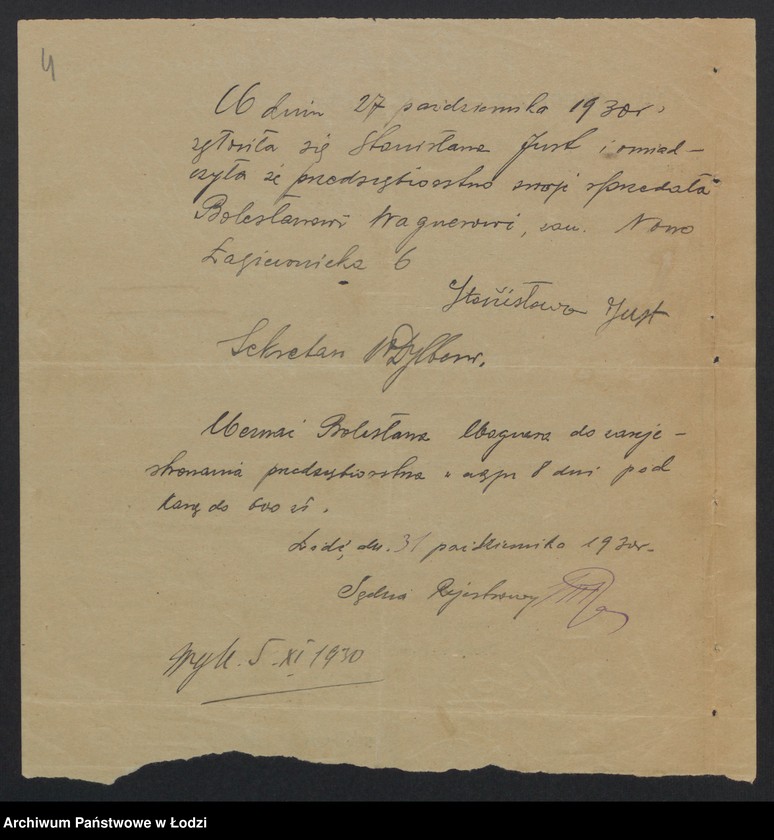 4
W dniu 27 października 1930 r.
zgłosiła się Stanisława Just i oświad-
czyła że przedsiębiorstwo swoje sprzedała
Bolesławowi Wagnerowi, zam. Nowo
Łagiewnicka 6
Stanisława Just
Sekretarz
Wezwać Bolesława Wagnera do zareje-
strowania przedsiębiorstwa w ciągu 8 dni pod
karą do 600 zł.
Łódź, dn. 31 października 1930 r.
Sędzia Rejestrowy
Wyk. 5.XI 1930
Archiwum Państwowe w Łodzi